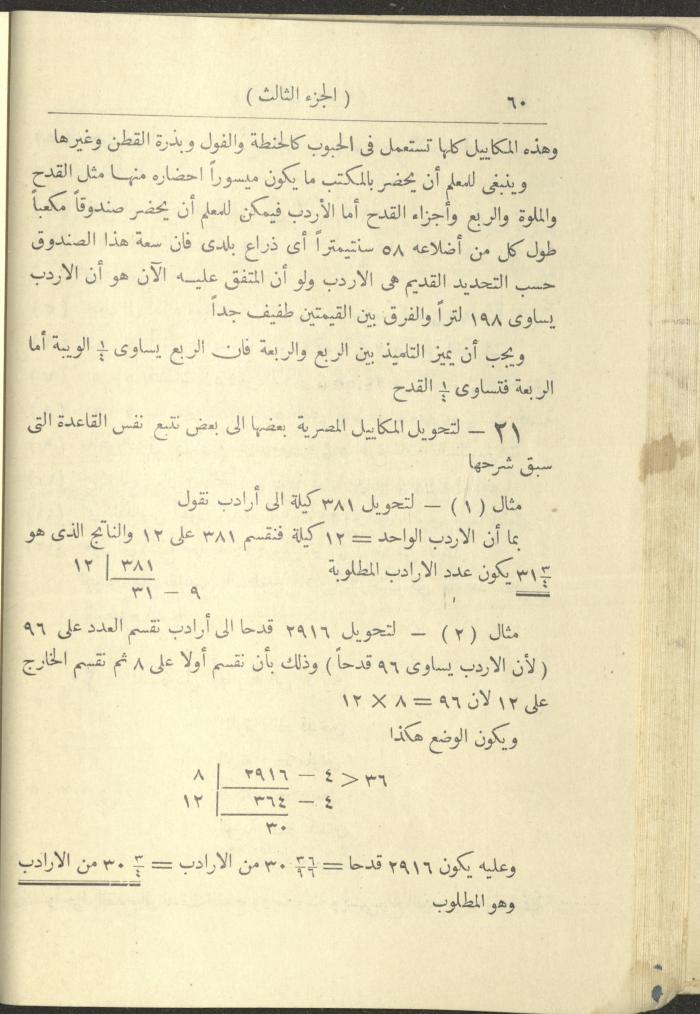 ٦٠ ( الجزء الثالث )
وهذه المكاييل كلها تستعمل فى الحبوب كالحنطة والفول وبذرة القطن وغيرها
وينبغى للمعلم أن يحضر بالمكتب ما يكون ميسوراً احضاره منها مثل القدح
والملوة والربع وأجزاء القدح أما الأردب فيمكن للمعلم أن يحضر صندوقاً مكعباً
طول كل من أضلاعه ٥٨ سنتيمتراً أى ذراع بلدى فان سعة هذا الصندوق
حسب التحديد القديم هى الاردب ولو أن المتفق عليه الآن هو أن الاردب
يساوى ١٩٨ لتراً والفرق بين القيمتين طفيف جداً
ويجب أن يميز التاميذ بين الربع والربعة فان الربع يساوى ¼ الويبة أما
الربعة فتساوى ¼ القدح
٢١ – لتحويل المكاييل المصرية بعضها الى بعض نتبع نفس القاعدة التى
سبق شرحها
مثال (١) – لتحويل ٣٨١ كيلة الى أرادب نقول
بما أن الاردب الواحد = ١٢ كيلة فنقسم ٣٨١ على ١٢ والناتج الذى هو
٣١ ٣/٤ يكون عدد الارادب المطلوبة ٣٨١ | ١٢
٩ – ٣١
مثال (٢) – لتحويل ٢٩١٦ قدحا الى أرادب نقسم العدد على ٩٦
(لأن الاردب يساوى ٩٦ قدحاً) وذلك بأن نقسم أولا على ٨ ثم نقسم الخارج
على ١٢ لان ٩٦ = ٨ × ١٢
ويكون الوضع هكذا
٣٦ > ٤ – ٢٩١٦ | ٨
٤ – ٣٦٤ | ١٢
٣٠
وعليه يكون ٢٩١٦ قدحا = ٣٠ ٣٦/٩٦ من الارادب = ٣٠ ٣/٤ من الارادب
وهو المطلوب